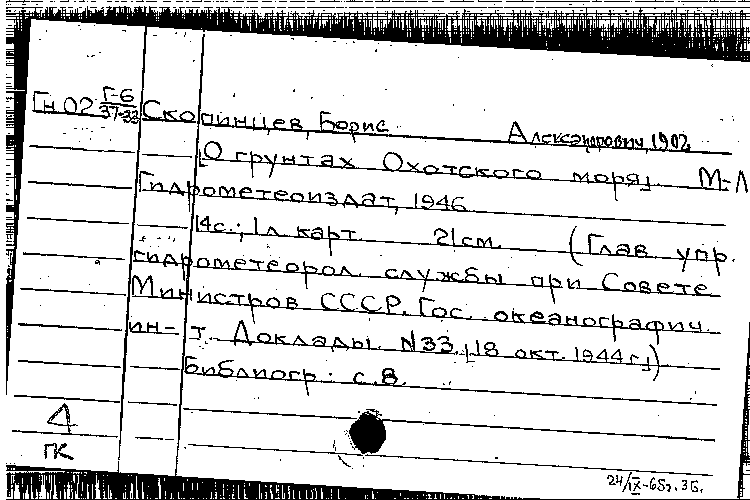 Гн 02 Г-6/37-33 Скопинцев, Борис Александрович, 1902,
[О грунтах Охотского моря] М-Л
Гидрометеоиздат, 1946
14с.; 1л карт 21см (Глав. упр.
гидрометеорол службы при Совете
Министров СССР. Гос. океанографич.
ин-т. Доклады. N33. [18 окт. 1944г.])
Библиогр: с.8.
4
ГК
24/IX-65г. ЗБ.